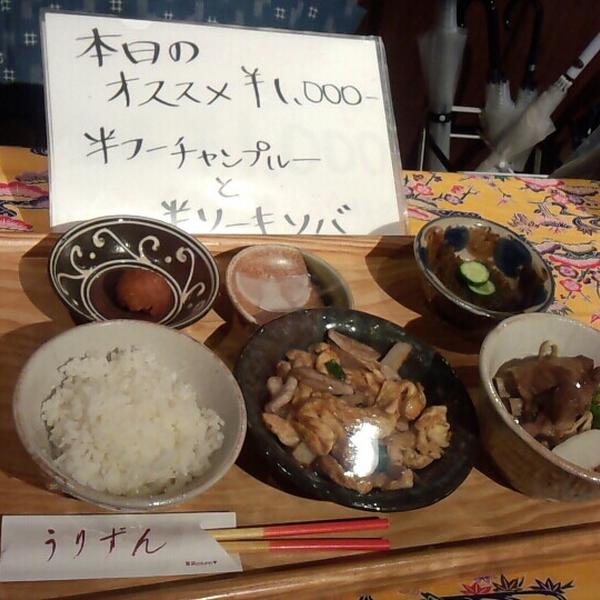 本日の
オススメ ¥1,000-
半フーチャンプルー
と
半ソーキソバ
うりずん